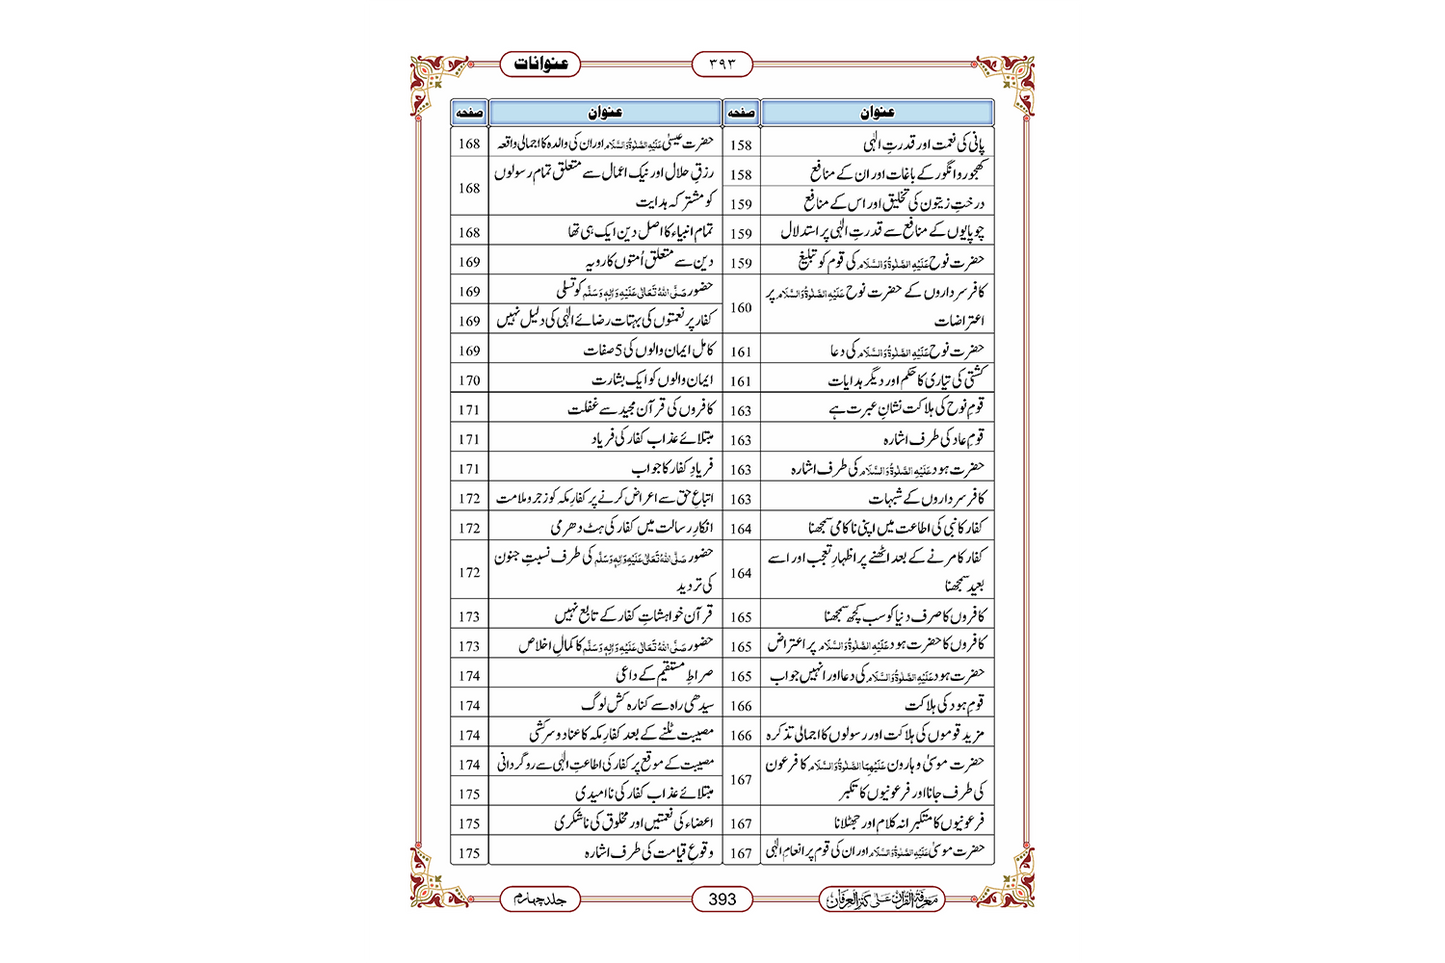 عنوانات
۳۹۳
عنوان
صفحہ
عنوان
صفحہ
پانی کی نعمت اور قدرتِ الٰہی
158
کھجور و انگور کے باغات اور ان کے منافع
158
درختِ زیتون کی تخلیق اور اس کے منافع
159
چوپایوں کے منافع سے قدرتِ الٰہی پر استدلال
159
حضرت نوح عَلَیْہِ الصَّلٰوۃُ وَالسَّلَام کی قوم کو تبلیغ
159
کافر سرداروں کے حضرت نوح عَلَیْہِ الصَّلٰوۃُ وَالسَّلَام پر
اعتراضات
160
حضرت نوح عَلَیْہِ الصَّلٰوۃُ وَالسَّلَام کی دعا
161
کشتی کی تیاری کا حکم اور دیگر ہدایات
161
قومِ نوح کی ہلاکت نشانِ عبرت ہے
163
قومِ عاد کی طرف اشارہ
163
حضرت ہود عَلَیْہِ الصَّلٰوۃُ وَالسَّلَام کی طرف اشارہ
163
کافر سرداروں کے شبہات
163
کفار کا نبی کی اطاعت میں اپنی ناکامی سمجھنا
164
کفار کا مرنے کے بعد اٹھنے پر اظہارِ تعجب اور اسے
بعید سمجھنا
164
کافروں کا صرف دنیا کو سب کچھ سمجھنا
165
کافروں کا حضرت ہود عَلَیْہِ الصَّلٰوۃُ وَالسَّلَام پر اعتراض
165
حضرت ہود عَلَیْہِ الصَّلٰوۃُ وَالسَّلَام کی دعا اور انہیں جواب
165
قومِ ہود کی ہلاکت
166
مزید قوموں کی ہلاکت اور رسولوں کا اجمالی تذکرہ
166
حضرت موسیٰ و ہارون عَلَیْہِمَا الصَّلٰوۃُ وَالسَّلَام کا فرعون
کی طرف جانا اور فرعونیوں کا تکبر
167
فرعونیوں کا متکبرانہ کلام اور جھٹلانا
167
حضرت موسیٰ عَلَیْہِ الصَّلٰوۃُ وَالسَّلَام اور ان کی قوم پر انعامِ الٰہی
167
حضرت عیسیٰ عَلَیْہِ الصَّلٰوۃُ وَالسَّلَام اور ان کی والدہ کا اجمالی واقعہ
168
رزقِ حلال اور نیک اعمال سے متعلق تمام رسولوں
کو مشترکہ ہدایت
168
تمام انبیاء کا اصل دین ایک ہی تھا
168
دین سے متعلق اُمتوں کا رویہ
169
حضور صَلَّی اللہُ تَعَالٰی عَلَیْہِ وَاٰلِہٖ وَسَلَّم کو تسلی
169
کفار پر نعمتوں کی بہتات رضائے الٰہی کی دلیل نہیں
169
کامل ایمان والوں کی 5 صفات
169
ایمان والوں کو ایک بشارت
170
کافروں کی قرآن مجید سے غفلت
171
مبتلائے عذاب کفار کی فریاد
171
فریادِ کفار کا جواب
171
اتباعِ حق سے اعراض کرنے پر کفارِ مکہ کو زجر و ملامت
172
انکارِ رسالت میں کفار کی ہٹ دھرمی
172
حضور صَلَّی اللہُ تَعَالٰی عَلَیْہِ وَاٰلِہٖ وَسَلَّم کی طرف نسبتِ جنون
کی تردید
172
قرآن خواہشاتِ کفار کے تابع نہیں
173
حضور صَلَّی اللہُ تَعَالٰی عَلَیْہِ وَاٰلِہٖ وَسَلَّم کا کمالِ اخلاص
173
صراطِ مستقیم کے داعی
174
سیدھی راہ سے کنارہ کش لوگ
174
مصیبت ٹلنے کے بعد کفارِ مکہ کا عناد و سرکشی
174
مصیبت کے موقع پر کفار کی اطاعتِ الٰہی سے روگردانی
174
مبتلائے عذاب کفار کی ناامیدی
175
اعضاء کی نعمتیں اور مخلوق کی ناشکری
175
وقوعِ قیامت کی طرف اشارہ
175
معرفۃ القرآن علیٰ کنز العرفان
393
جلد چہارم